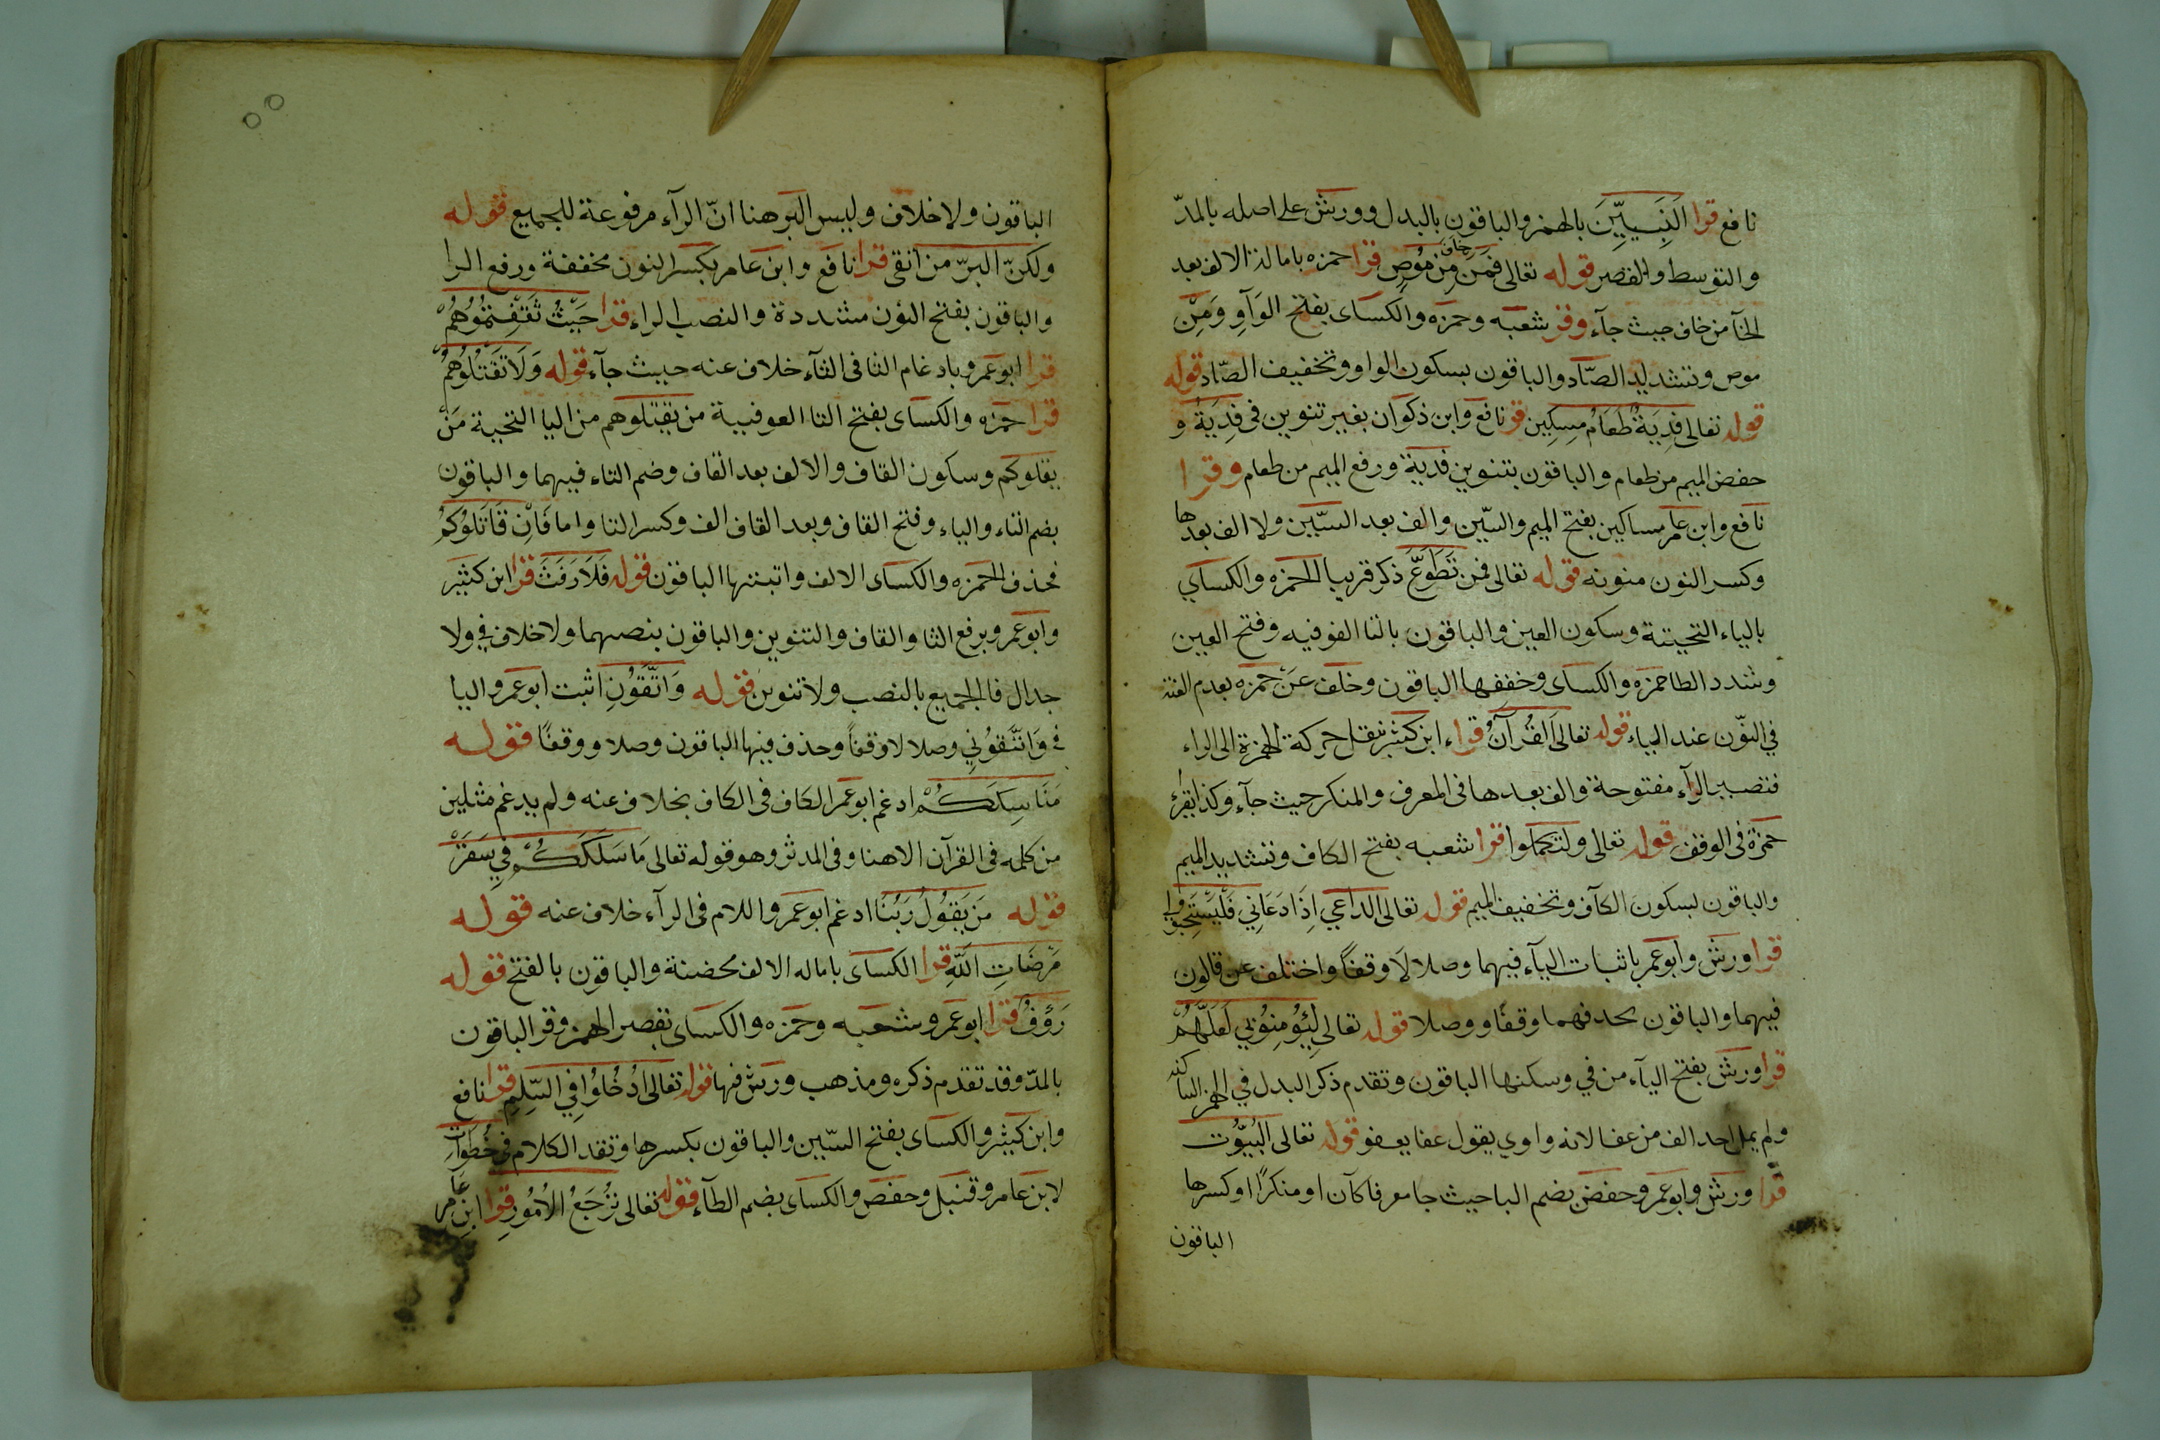 نافع قرا النَبِيِّينَ بالهمز والباقون بالبدل وورش على اصله بالمدّ
والتوسط والقصر قوله تعالى فمَن خاف مِن مُوصٍ قرا حمزه بامالة الالف بعد
الخآ من خاف حيث جآء وقر شعبه وحمزه والكساى بفتح الوَآوِ وَمِنْ
موص وتشديد الصّاد والباقون بسكون الواو وتخفيف الصّاد قوله
قوله تعالى فِدِيَةُ طَعَامُ مِسكِين قر نافع وابن ذكوان بغير تنوين في فِدِيَةُ و
خفض الميم من طعام والباقون بتنوين فدية ورفع الميم من طعام وقرا
نافع وابن عامر مساكين بفتح الميم والسّين والف بعد السّين ولا الف بعدها
وكسر النون منونه قوله تعالى فمن تَطَوَعَّ ذكر قريبا لحمزه والكساي
بالياء التحيتة وسكون العين والباقون بالتا الفوفيه وفتح العين
وشدد الطا حمزه والكساى وخففها الباقون وخلف عن حمزه بعدم الغنة
في النّون عند الياء قوله تعالى اَلقُرآنُ قراء ابن كثير بنقل حركة الهمزة الى الراء
فتصير الرآء مفتوحة والف بعدها فى المعرف والمنكر حيث جآء وكذا يقرء
حمَزة فى الوقف قوله تعالى ولتكملوا قرا شعبه بفتح الكاف وتشديد الميم
والباقون بسكون الكآف وتخفيف الميم قوله تعالى الداعي اِذَا دَعَاني فَلْيَسْتَجيبُوا لي
قرا ورش وابوعمر باثبات اليآء فيهما وصلا لاَ وقفاً واختلف عن قالون
فيهما والباقون بحدفهما وقفًا ووصلا قوله تعالى لِيُؤمِنوُبي لَعَلَّهُمْ
قرا ورش بفتح اليآء من في وسكنها الباقون وتقدم ذكر البدل في الهمز الساكنه
ولم يمل احد الف من عفا لانه واوي يقول عفا يعفو قوله تعالى البُيُوت
قرا ورش وابوعمر وحفض بضم البا حيث جا معرفا كآن او منكرًا وكسرها
الباقون
الباقون ولا خلاف وليس البر هنا انّ الرآء مرفوعة للجميع قوله
ولكنّ البرّ من اتقى قرا نافع وابن عامر بكسر النون مخففة ورفع الرا
والباقون بفتح النون مشددة والنصب الراء قرا حَيْثُ ثَقَفِتمُوُهُمْ
قرا ابوعمرو بادغام الثا فى الثآء خلاف عنه حيث جآء قوله وَلاَ تقَتْلُوُهُمْ
قرا حمزه والكساى بفتح التا الفوفيية من يقتلوهم من اليا التحيية مَنْ
يقلوكم وسكون القاف والالف بعد القاف وضم التاء فيهما والباقون
بضم التاء والياء وفتح القاف وبعد القاف الف وكسر التا واما فَاِنْ قَاتَلوُكمْ
فحذف لحمزه والكساى الالف واتبتها الباقون قوله فَلاَ رَفَثَ قرا ابن كثير
وابوعمرو برفع الثا والقاف والتنوين والباقون بنصبهما ولا خلاف في ولا
جدال فالجميع بالنصب ولا تنوين قوله وَاتَّقَوُنِ اثبت ابوعمرو اليا
في وَاتَّقوُني وصلا لا وقفاً وحذف فيها الباقون وصلا ووقفًا قوله
مَنَاسِكَكُمْ ادغم ابوعمر الكاف فى الكاف بخلاف عنه ولم يدغم مثلين
من كلمه فى القرآن الا هنا وفى المدثر وهو قوله تعالى مَا سَلَكَكُمْ فِي سَقَرَ
قوله مَن يَقوُلُ رَبَّنَا ادغم ابوعمرو اللام فى الرآء خلاف عنه قوله
مَرضَاتِ اللّهِ قرا الكساى باماله الالف محضنة والباقون بالفتح قوله
رَؤفُ قرا ابوعمرو وشعبه وحمزه والكساى بقصر الهمز وقر الباقون
بالمدّ وقد تقدم ذكره ومذهب ورش فيها قوله تعالى اُدْخُلُوا فِي السِّلِمِ قرا نافع
وابن كثير والكساى بفتح السّين والباقون بكسرها وتقد الكلام في خُطوَاتِ
لابن عامر وقنبل وحفص والكساى بضم الطآء قوله تعالى تُرْجَعُ الاُمُورُ قرا ابن عامر